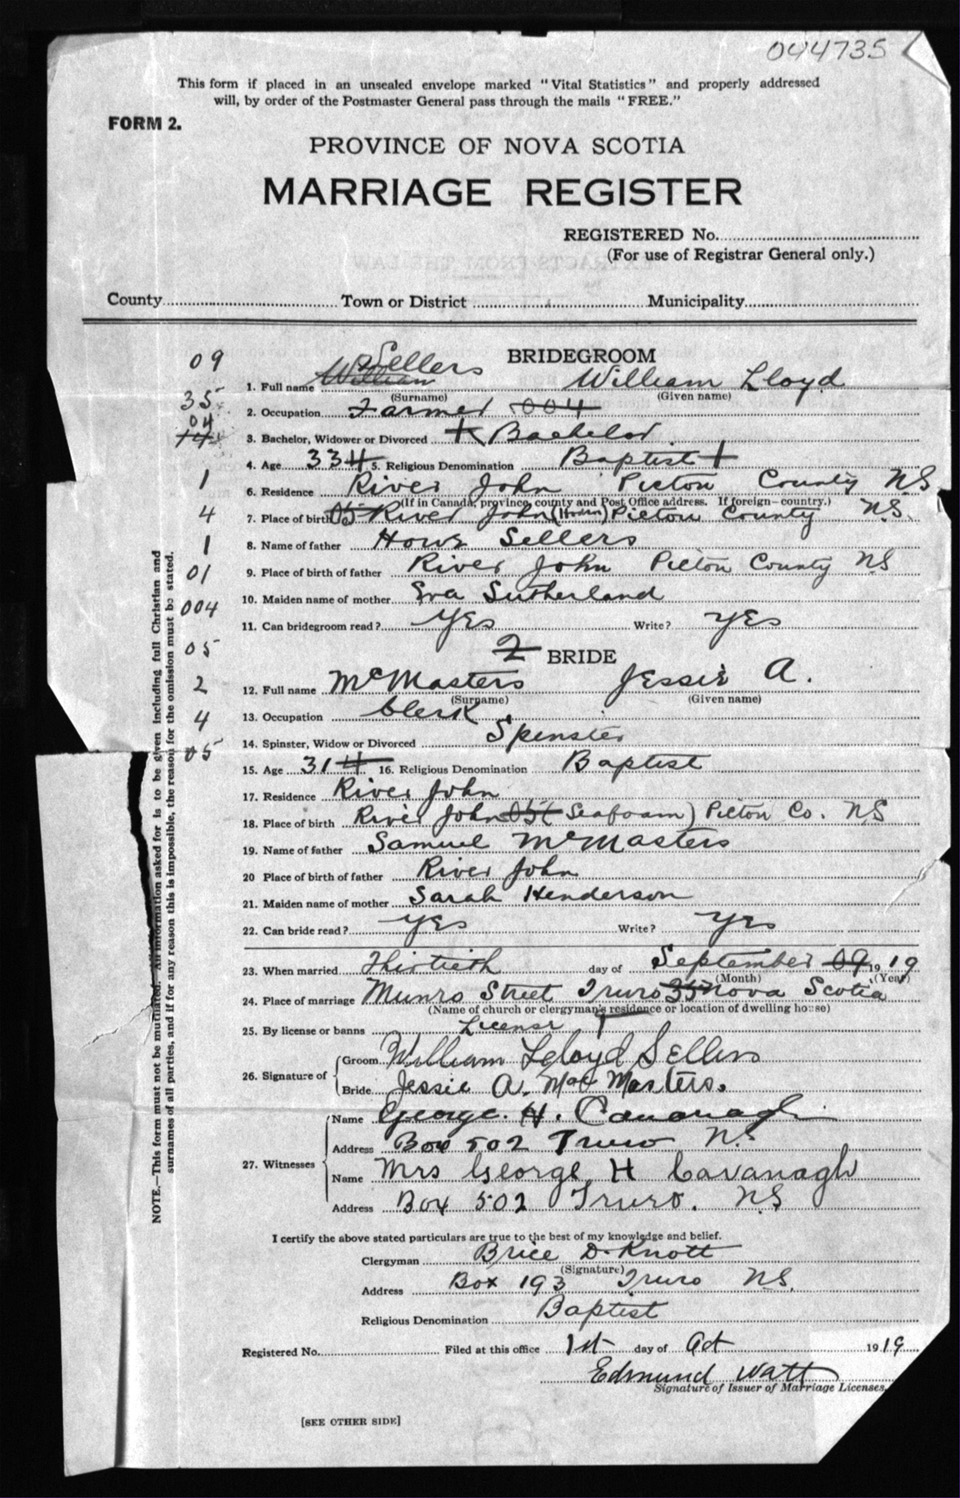 044735
This form if placed in an unsealed envelope marked "Vital Statistics" and properly addressed
will, by order of the Postmaster General pass through the mails "FREE."
FORM 2.
PROVINCE OF NOVA SCOTIA
MARRIAGE REGISTER
REGISTERED No.
(For use of Registrar General only.)
County Town or District Municipality
BRIDEGROOM
09
1. Full name William Sellers William Lloyd
(Surname) (Given name)
35
2. Occupation Farmer 004
04
3. Bachelor, Widower or Divorced Bachelor
4. Age 33 4 5. Religious Denomination Baptist
1
6. Residence River John Pictou County NS
(If in Canada, province, county and Post Office address. If foreign—country.)
4
7. Place of birth 05 River John Pictou County N.S.
1
8. Name of father Sellers
01
9. Place of birth of father River John Pictou County NS
004
10. Maiden name of mother Eva Sutherland
11. Can bridegroom read? Yes Write? Yes
05
2 BRIDE
2
12. Full name McMasters Jessie A.
(Surname) (Given name)
4
13. Occupation Clerk
14. Spinster, Widow or Divorced Spinster
05
15. Age 31 4 16. Religious Denomination Baptist
17. Residence River John
18. Place of birth River John 05 (Seafoam) Pictou Co. NS
19. Name of father Samuel McMasters
20 Place of birth of father River John
21. Maiden name of mother Sarah Henderson
22. Can bride read? Yes Write? Yes
23. When married Thirtieth day of September 09 1919
(Month) (Year)
24. Place of marriage Munro Street Truro 35 Nova Scotia
(Name of church or clergyman's residence or location of dwelling house)
25. By license or banns License
26. Signature of Groom William Lloyd Sellers
Bride Jessie A. MacMasters.
27. Witnesses
Name George. H. Cavanagh
Address Box 502 Truro N.S
Name Mrs George H Cavanagh
Address Box 502 Truro. NS
I certify the above stated particulars are true to the best of my knowledge and belief.
Clergyman Brice D. Knott
(Signature)
Address Box 193 Truro NS.
Religious Denomination Baptist
Registered No. Filed at this office 1st day of Oct 1919
Edmund Watt
Signature of Issuer of Marriage Licenses.
[SEE OTHER SIDE]
NOTE.—This form must not be mutilated. All information asked for is to be given including full Christian and
surnames of all parties, and if for any reason this is impossible, the reason for the omission must be stated.